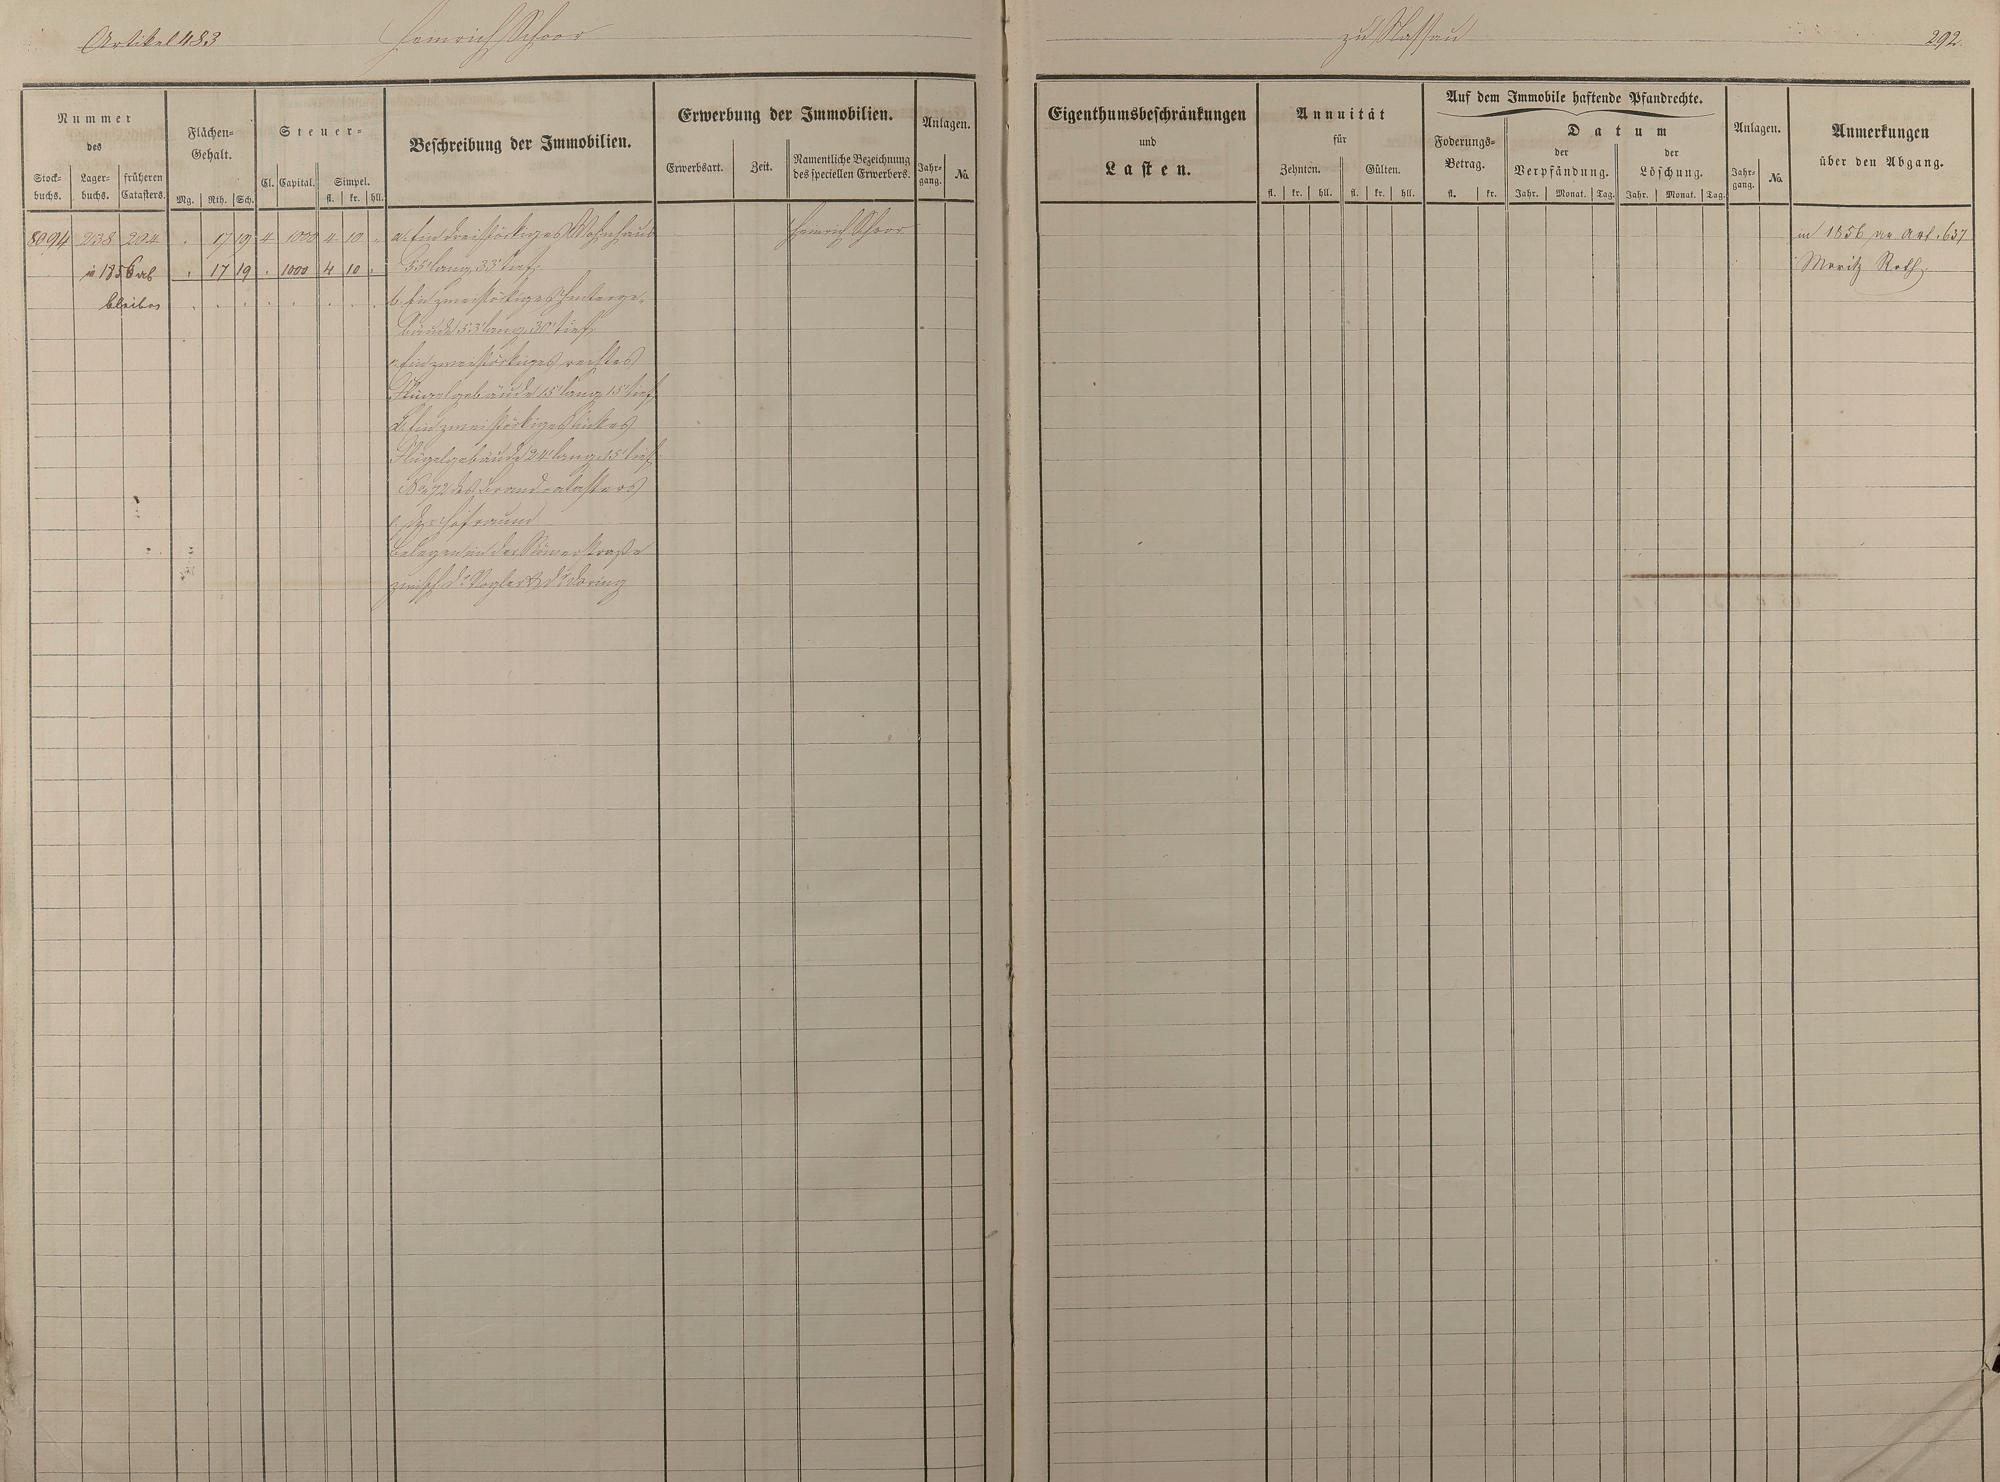 Artikel 483 Heinrich Schoor zu Nassau 292.
Nummer
des
Stock-
buchs.
Lager-
buchs.
früheren
Catasters.
Flächen-
Gehalt.
Mg. Rth. Sch.
Steuer-
Cl. Capital. Simpel.
fl. kr. hll.
Beschreibung der Immobilien.
Erwerbung der Immobilien.
Erwerbsart. Zeit.
Namentliche Bezeichnung
des speciellen Erwerbers.
Anlagen.
Jahr-
gang.
No.
Eigenthumsbeschränkungen
und
Lasten.
Annuität
für
Zehnten. Gülten.
fl. kr. hll. fl. kr. hll.
Auf dem Immobile haftende Pfandrechte.
Foderungs-
Betrag.
fl. kr.
Datum
der
Verpfändung.
Jahr. Monat. Tag.
der
Löschung.
Jahr. Monat. Tag.
Anlagen.
Jahr-
gang.
No.
Anmerkungen
über den Abgang.
8094 238 204 . 17 19 4 1000 4 10 . a. Ein dreistöckiges Wohnhaus Heinrich Schoor in 1856 an Art. 637
in 1856 ab . 17 19 . 1000 4 10 . 55' lang 33' tief, Moritz Roth.
bleiben . . . . . . . . b. Ein zweistöckiges Hinterge-
bäude 53' lang 30' tief,
c. Ein zweistöckiges rechtes
Flügelgebäude 15' lang 15' tief,
d. Ein zweistöckiges linkes
Flügelgebäude 24' lang 15' tief
No 72 des Brandcatasters
e. Der Hofraum
belegen in der Römerstraße
zwisch. Vogler & Döring